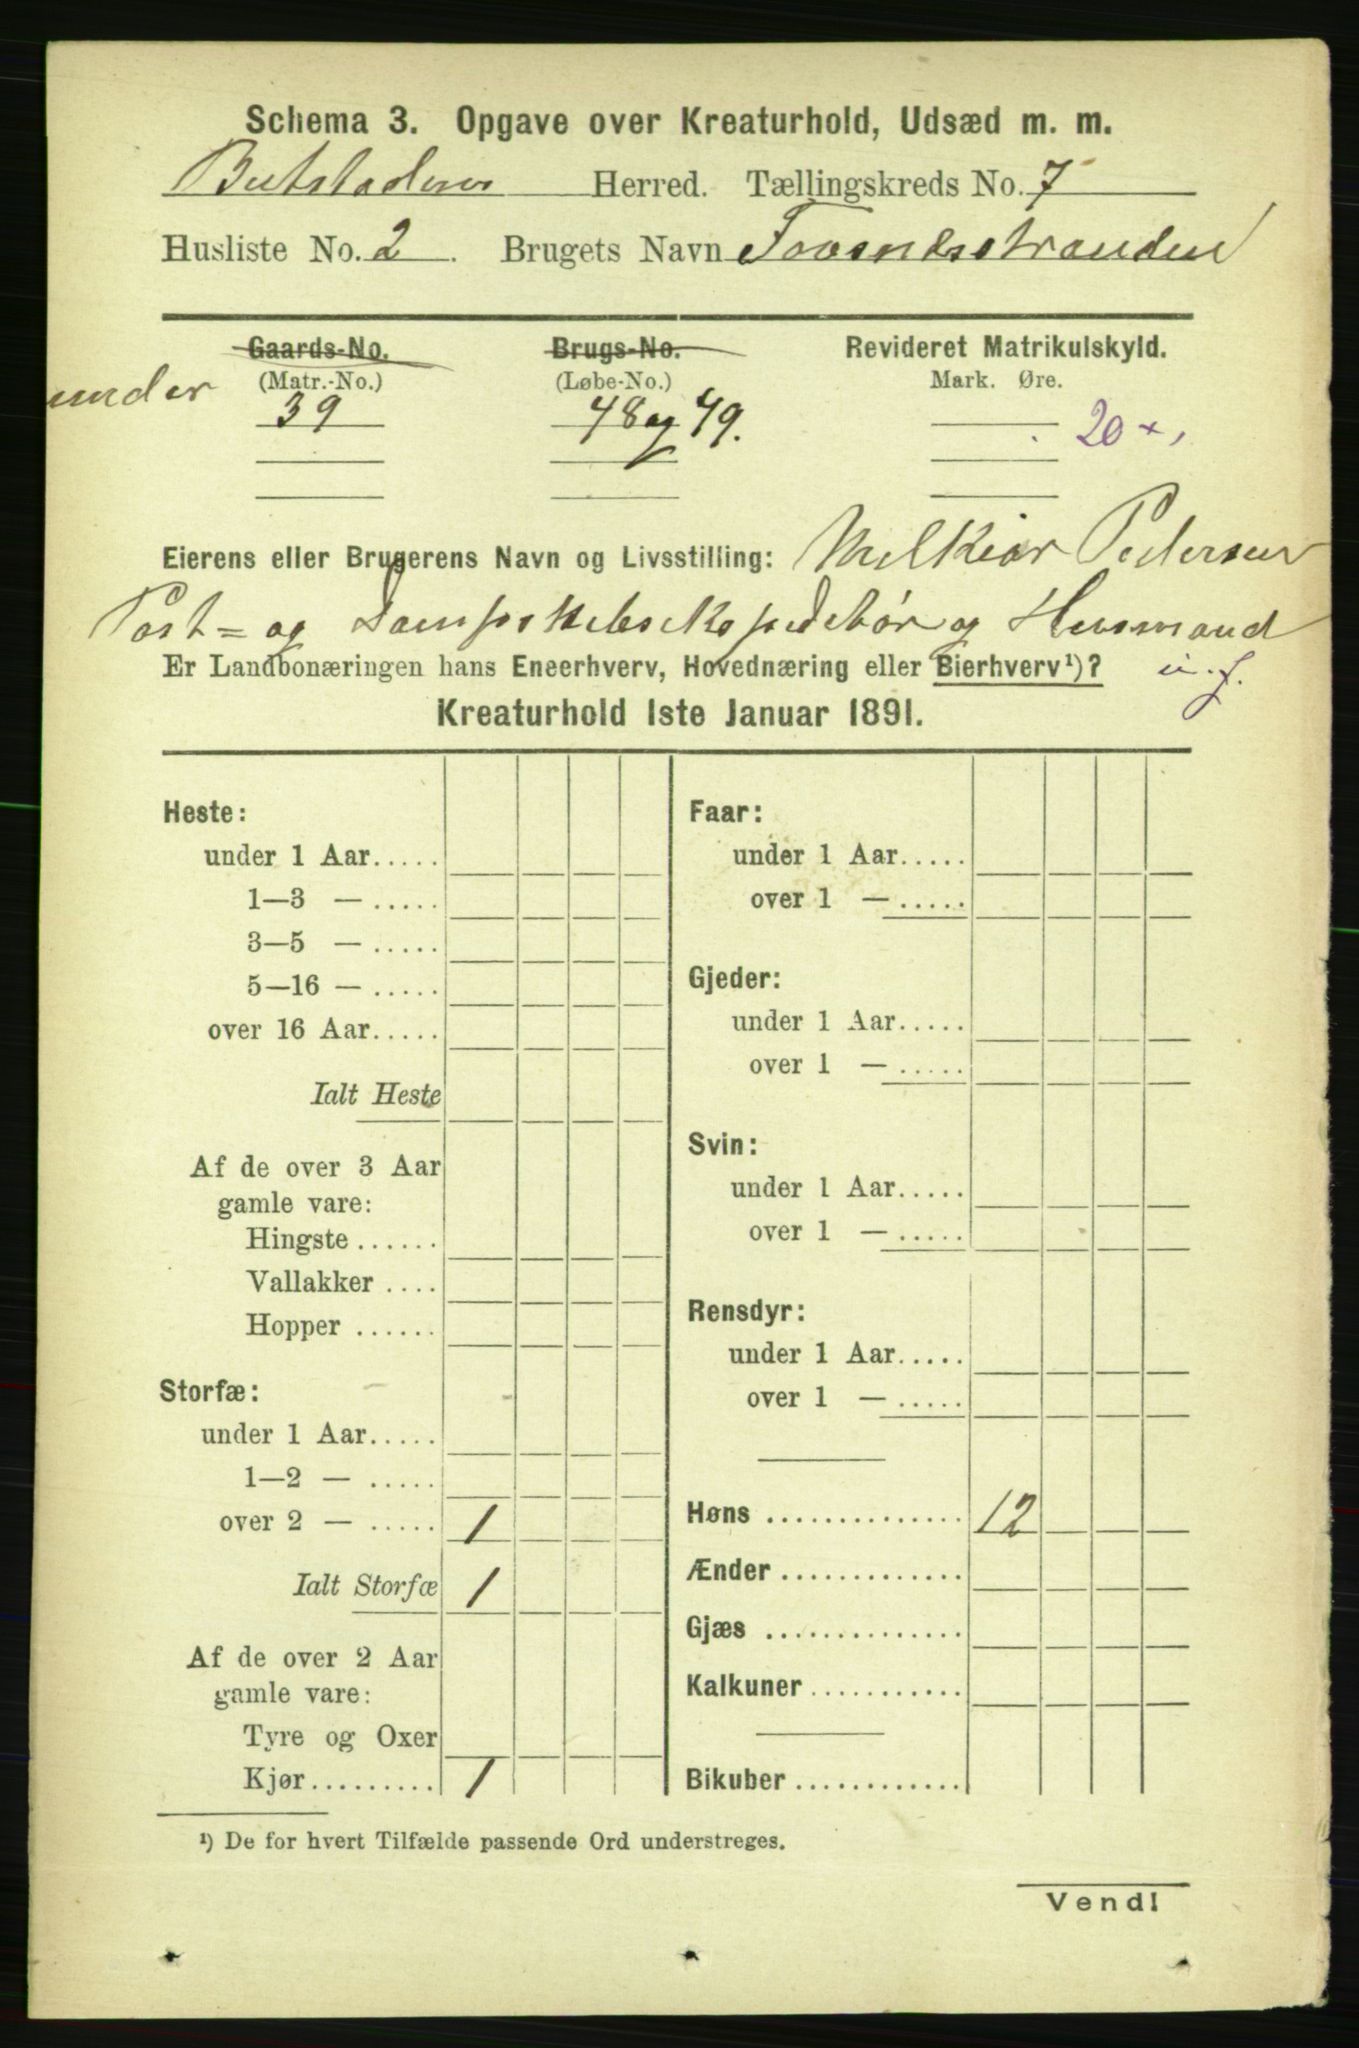 Schema 3. Opgave over Kreaturhold, Udsæd m. m.
Herred. Tællingskreds No. 7
Husliste No. 2. Brugets Navn
Gaards-No. Brugs-No. Revideret Matrikulskyld.
(Matr.-No.) (Løbe-No.) Mark. Øre.
under 39 48 og 49. 20
Eierens eller Brugerens Navn og Livsstilling: Melkior Pedersen
Post- og Dampskibsekspeditør og Husmand
Er Landbonæringen hans Eneerhverv, Hovednæring eller Bierhverv¹)? u. j.
Kreaturhold 1ste Januar 1891.
Heste:
under 1 Aar.....
1—3 — .....
3—5 — .....
5—16 — .....
over 16 Aar.....
Ialt Heste
Af de over 3 Aar
gamle vare:
Hingste ......
Vallakker ....
Hopper ......
Storfæ:
under 1 Aar.....
1—2 — .....
over 2 — ..... 1
Ialt Storfæ 1
Af de over 2 Aar
gamle vare:
Tyre og Oxer
Kjør......... 1
Faar:
under 1 Aar.....
over 1 — .....
Gjeder:
under 1 Aar.....
over 1 — .....
Svin:
under 1 Aar.....
over 1 — .....
Rensdyr:
under 1 Aar.....
over 1 — .....
Høns .............. 12
Ænder .............
Gjæs ..............
Kalkuner ...........
Bikuber ............
¹) De for hvert Tilfælde passende Ord understreges.
Vend!